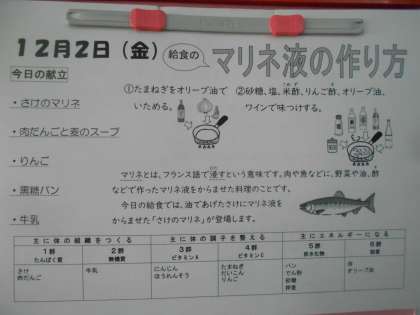 12月2日(金)
給食の
マリネ液の作り方
今日の献立
・さけのマリネ
・肉だんごと麦のスープ
・りんご
・黒糖パン
・牛乳
①たまねぎをオリーブ油で
いためる。
②砂糖、塩、米酢、りんご酢、オリーブ油、
ワインで味つけする。
マリネとは、フランス語で浸すという意味です。肉や魚などに、野菜や油、酢
などで作ったマリネ液をからませた料理のことです。
今日の給食では、油であげたさけにマリネ液を
からませた「さけのマリネ」が登場します。
主に体の組織をつくる 主に体の調子を整える 主にエネルギーになる
1群 2群 3群 4群 5群 6群
たんぱく質 無機質 ビタミンA ビタミンC 炭水化物 脂質
さけ 牛乳 にんじん たまねぎ パン 油
肉だんご ほうれんそう だいこん でん粉 オリーブ油
りんご 砂糖
押麦